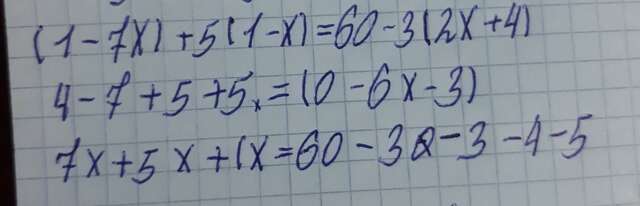 (1-7x)+5(1-x)=60-3(2x+4)
4-7+5+5x=(0-6x-3)
7x+5x+1x=60-32-3-4-5